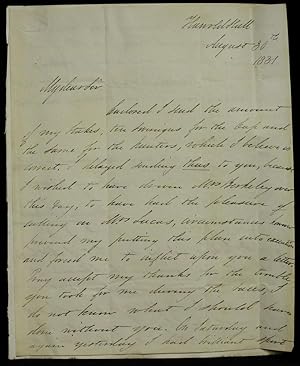 Harrold Hall
August 30th
1831
My dear Sir
Enclosed I send the amount
of my Stakes, ten sovereigns for the Cup and
the same for the Hunters, which I believe is
correct, I delayed sending them to you, because
I wished to have driven Mrs Berkeley over
this day, to have had the pleasure of
calling on Mrs circumstances have
prevented my putting this plan into execution
and forced me to inflict upon you a letter
Pray accept my thanks for the trouble
you took for me during the races, I
do not know what I should have
done without you. On Saturday and
again yesterday I had brilliant sport